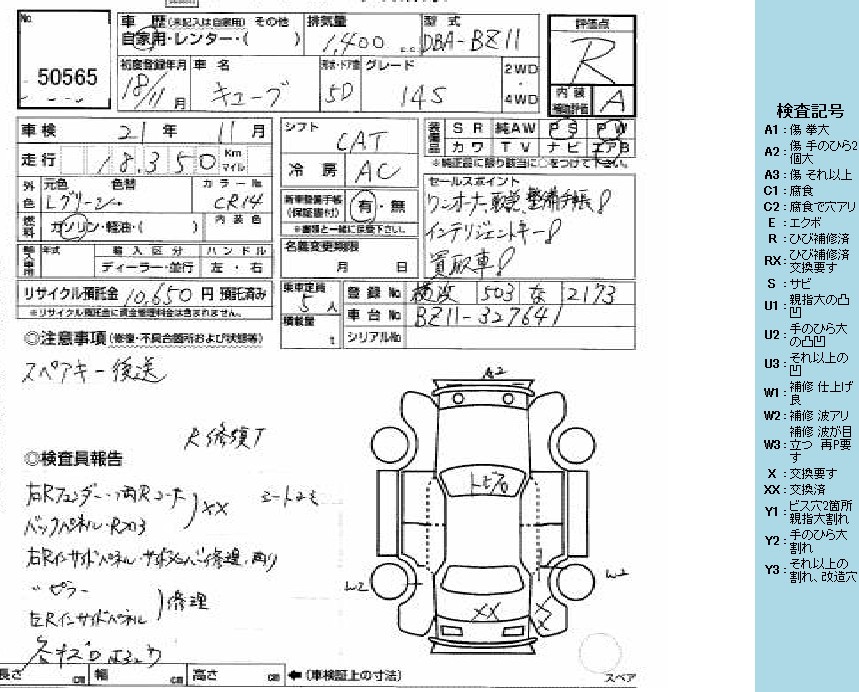 No
50565
車 歴(未記入は自家用) その他
自家用・レンター・( )
排気量
1,400 c.c.
型 式
DBA-BZ11
評価点
R
内 装
補助評価
A
初度登録年月
18/11 月
車 名
キューブ
形状・ドア数
5D
グレード
14S
2WD
4WD
車 検
21 年 11 月
走行
18,350 Km
マイル
シフト
CAT
冷 房
AC
装備品
S R 純AW P S P W
カ ワ T V ナ ビ エアB
※純正品に限り該当に○をつけて下さい。
外色
元色 色替
Lグリーン
カラーNo.
CR14
燃料
ガソリン・軽油・( )
内 装 色
新車整備手帳
(保証書付)
有・無
※書類と一緒に送信下さい。
セールスポイント
ワンオーナー、取説、整備手帳!
インテリジェントキー!
買取車!
輸入車用
年式
輸 入 区 分
ハ ン ド ル
ディーラー・並行
左 ・ 右
名義変更期限
月 日
リサイクル預託金 10,650 円 預託済み
※リサイクル預託金に資金管理料金は含まれません。
乗車定員
5 人
積載量
t
登 録 No 横浜 503 な 2173
車 台 No BZ11-327641
シリアルNo
◎注意事項(修復・不具合箇所および状態等)
スペアキー後送
R修復了
◎検査員報告
右Rフェンダー・両Rコーナー
バックパネル・Rフロア
XX
右Rインサイドパネル
〃 ピラー
左Rインサイドパネル
修理
A2
トビ石
W2
W2
XX
スペア
長さ cm 幅 cm 高さ cm ←(車検証上の寸法)
検査記号
A1:傷 拳大
A2:傷 手のひら2個大
A3:傷 それ以上
C1:腐食
C2:腐食で穴アリ
E:エクボ
R:ひび補修済
RX:ひび補修済 交換要す
S:サビ
U1:親指大の凸凹
U2:手のひら大の凸凹
U3:それ以上の凹
W1:補修 仕上げ良
W2:補修 波アリ
W3:補修 波が目立つ 再P要す
X:交換要す
XX:交換済
Y1:ビス穴2箇所 親指大割れ
Y2:手のひら大割れ
Y3:それ以上の割れ、改造穴